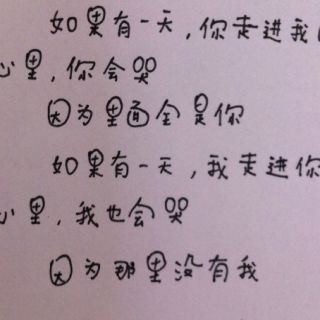 如果有一天，你走进我
心里，你会哭
因为里面全是你
如果有一天，我走进你
心里，我也会哭
因为那里没有我